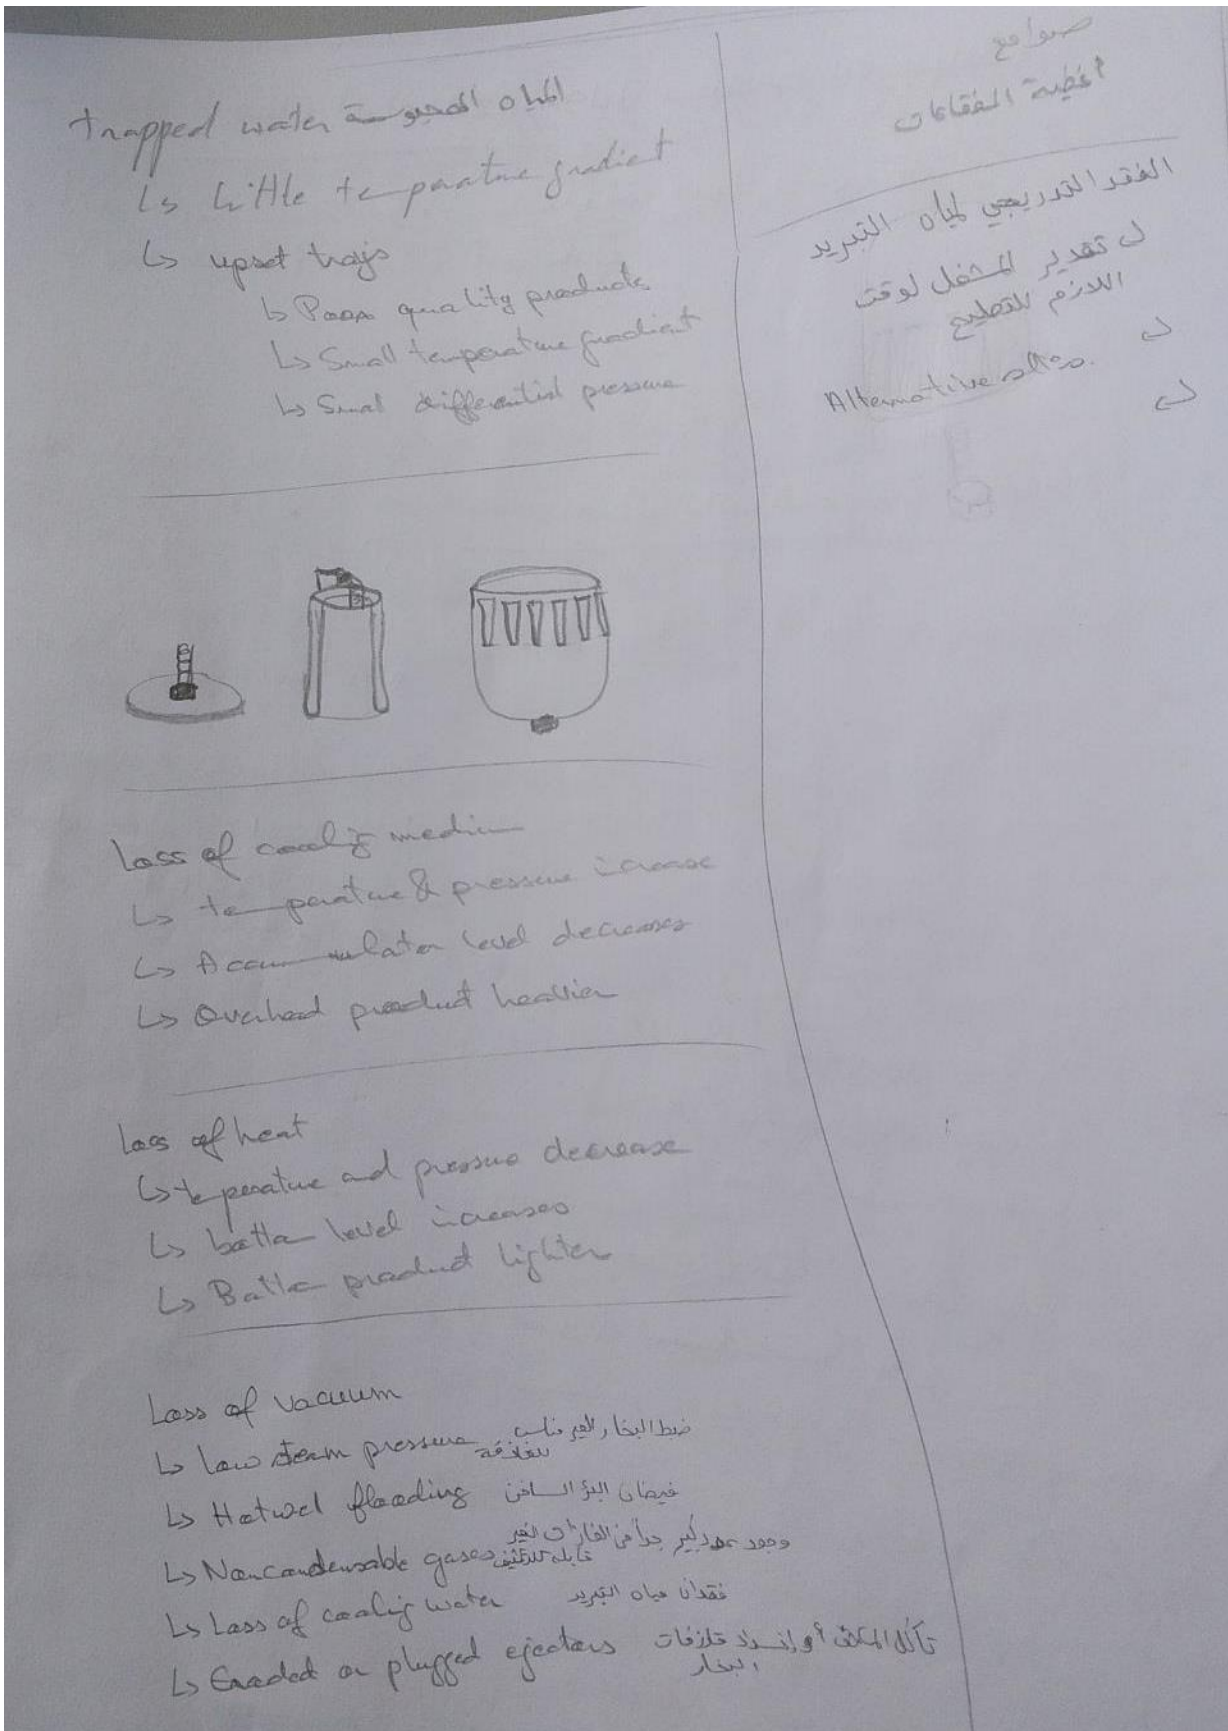 trapped water المياه المحبوسة
↳ Little temperature gradient
↳ upset trays
↳ Poor quality products
↳ Small temperature gradient
↳ Smal differential pressure
Loss of cooling medium
↳ temperature & pressure increase
↳ Accumulator level decreases
↳ Overhead product heavier
Loss of heat
↳ temperature and pressure decrease
↳ bottom level increases
↳ Bottom product lighter
Loss of vacuum
↳ low steam pressure ضبط البخار الغير مناسب
للقاذفة
↳ Hotwel flooding فيضان البئر الساخن
↳ Noncondensable gases وجود عدد كبير جداً من الغازات الغير
قابلة للتكثيف
↳ Loss of cooling water فقدان مياه التبريد
↳ Eroded or plugged ejectors تآكل المكثف أو انسداد قاذفات
البخار
صوامع
أغطية الفقاعات
الفقد التدريجي لمياه التبريد
ل تقدير المشغل لوقت
اللازم للتصليح
Alternative